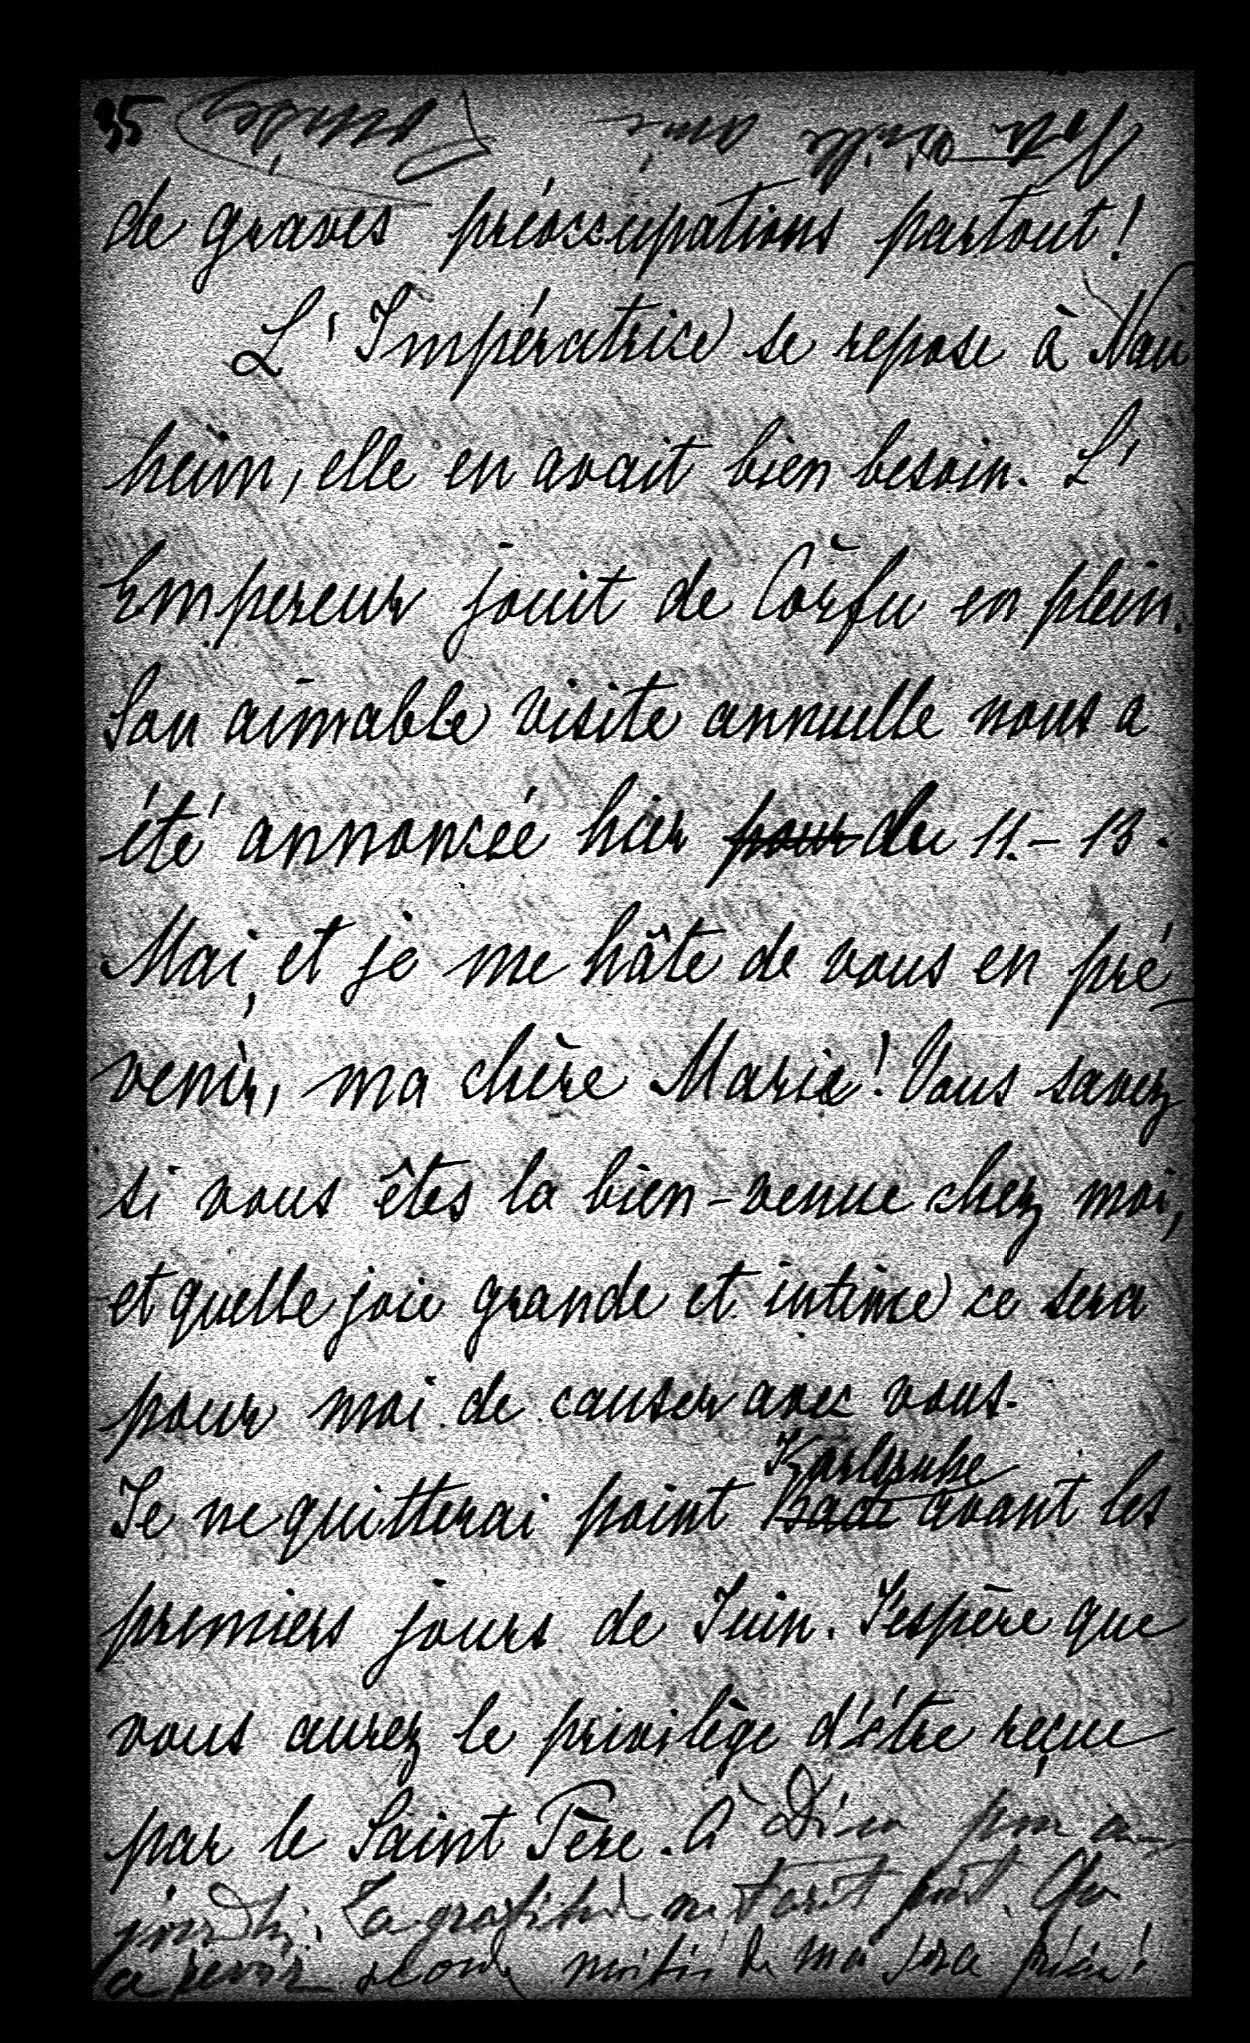 35
Votre vieille amie Louise
de graves préoccupations partout!
L'Impératrice se repose à Nau
heim, elle en avait bien besoin. L'
Empereur jouit de Corfu en plein.
Son aimable visite annuelle nous a
été annoncée hier pour du 11.- 13.
Mai, et je me hâte de vous en pré
venir, ma chère Marie! Vous savez
si vous êtes la bien-venue chez moi,
et quelle joie grande et intime ce sera
pour moi de causer avec vous.
Karlsruhe
Je ne quitterai point Bade avant les
premiers jours de Juin. J'espère que
vous aurez le privilège d'être reçue
par le Saint Père. À Dieu pour au-
jourd'hui. La gratitude ne tarit point.
à revoir seconde moitié de Mai sera